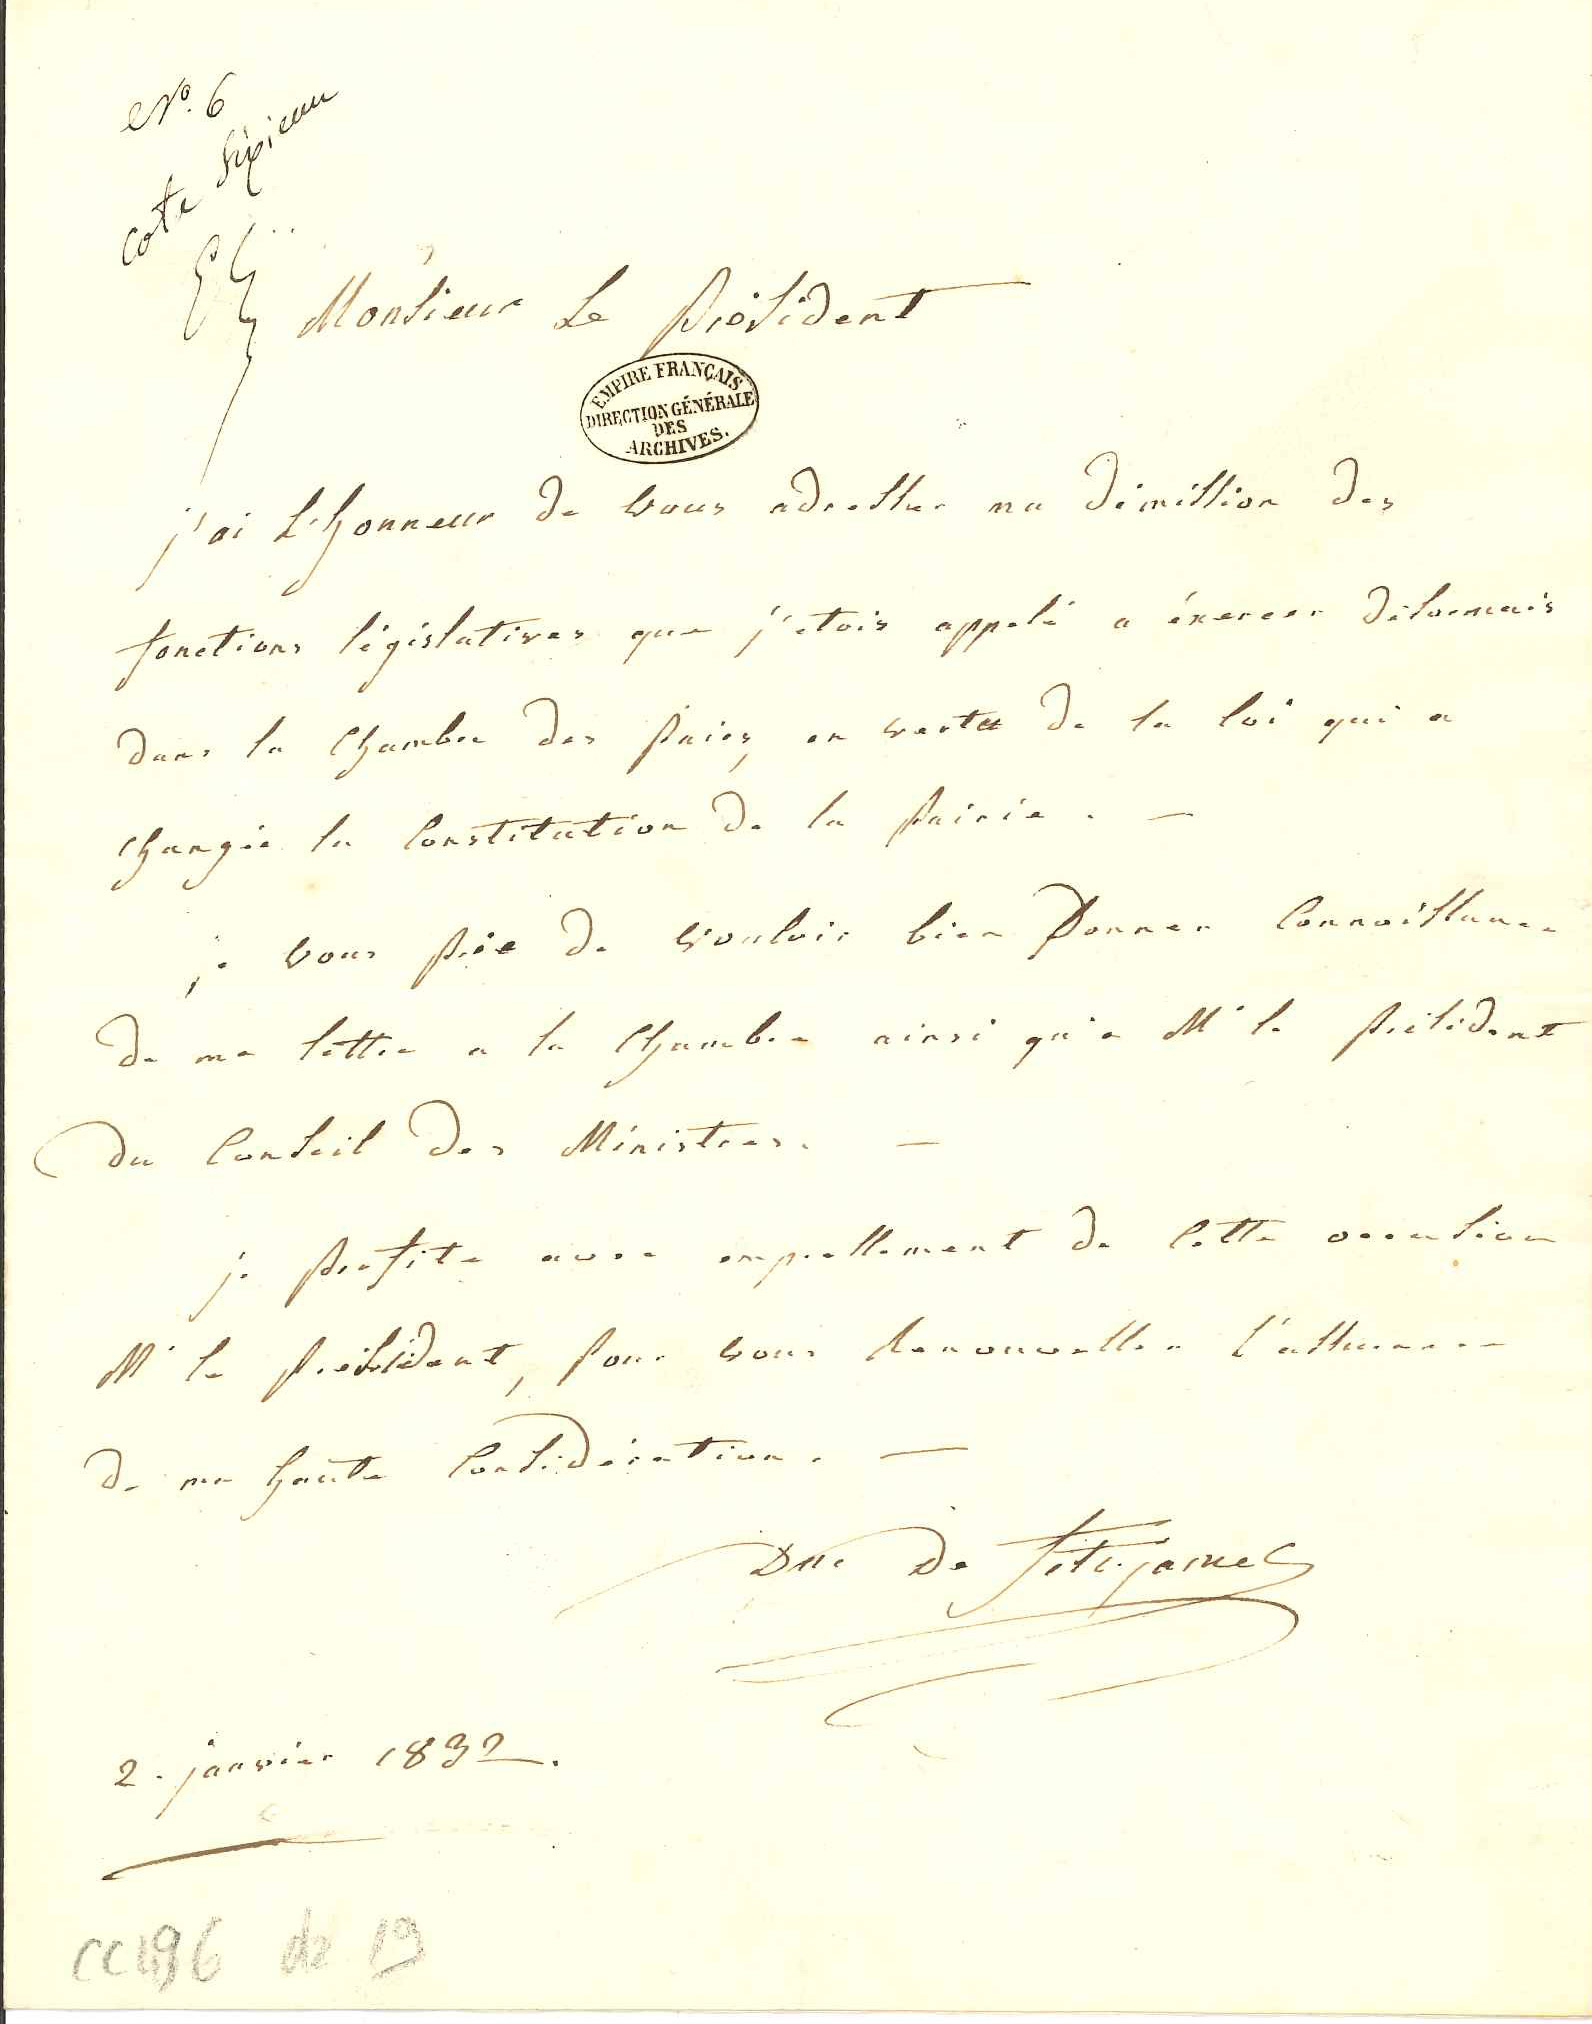 N.º 6
Cote
Monsieur Le Président
EMPIRE FRANÇAIS
DIRECTION GÉNÉRALE
DES
ARCHIVES.
j'ai L'honneur de vous adresser ma démission des
fonctions législatives que j'etois appelé a éxercer désormais
dans la Chambre des Pairs, en vertu de la loi qui a
changée la Constitution de la Pairie. —
je vous prie de vouloir bien Donner Connoissance
de ma lettre a la Chambre ainsi qu'a Mr le Président
du Conseil des Ministres. —
je Profite avec empressement de Cette occasion
Mr le Président, Pour vous Renouveller l'assurance
de ma haute Considération. —
Duc De fitz-james
2. janvier 1832.
CC 196 de 19